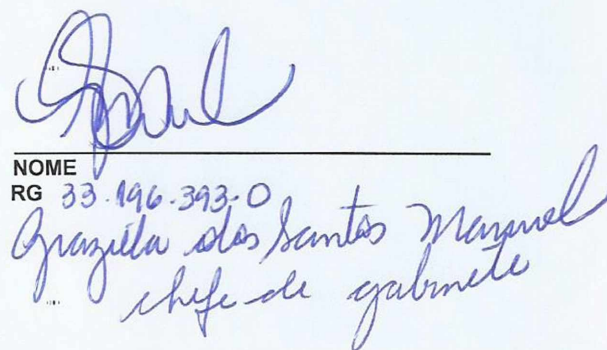 NOME
RG 33.196.393-0
Graziela dos Santos Manoel
chefe de gabinete